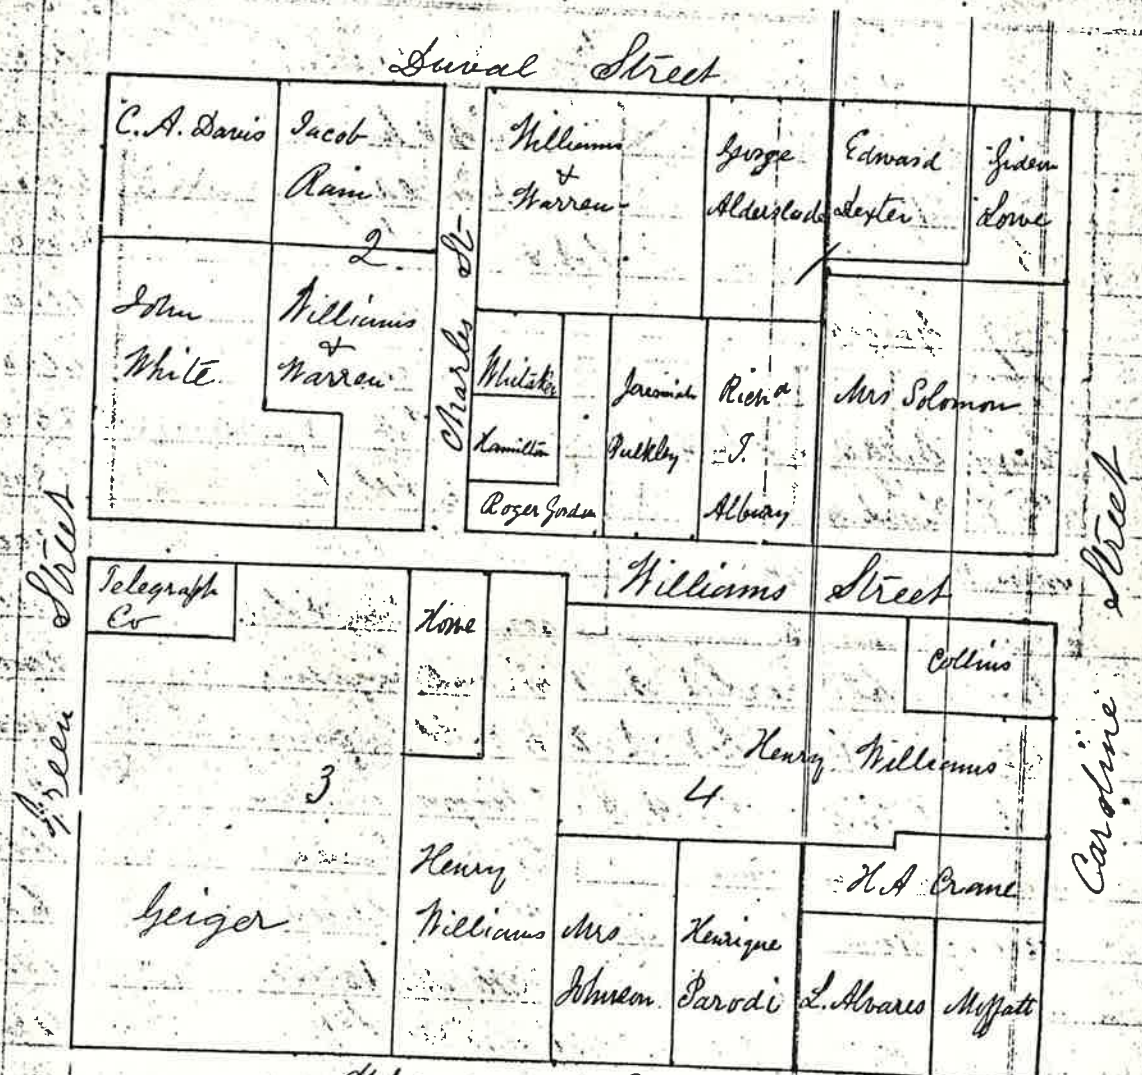 Duval Street
C. A. Davis
Jacob
Rain
2
John
White
Williams
&
Warren
Charles St
Williams
&
Warren
George
Alderslade
1
Edward
Dexter
Gideon
Lowe
Whitaker
Hamilton
Roger Gordon
Jeremiah
Pulkley
Richd
T.
Albury
Mrs Solomon
Green Street
Williams Street
Caroline Street
Telegraph
Co
Howe
3
Geiger
Henry
Williams
Collins
Henry Williams
4
H A Crane
Mrs
Johnson
Henrique
Parodi
L. Alvares
Moffatt